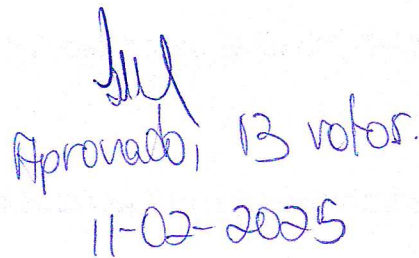 Aprovado, 13 votos.
11-02-2025